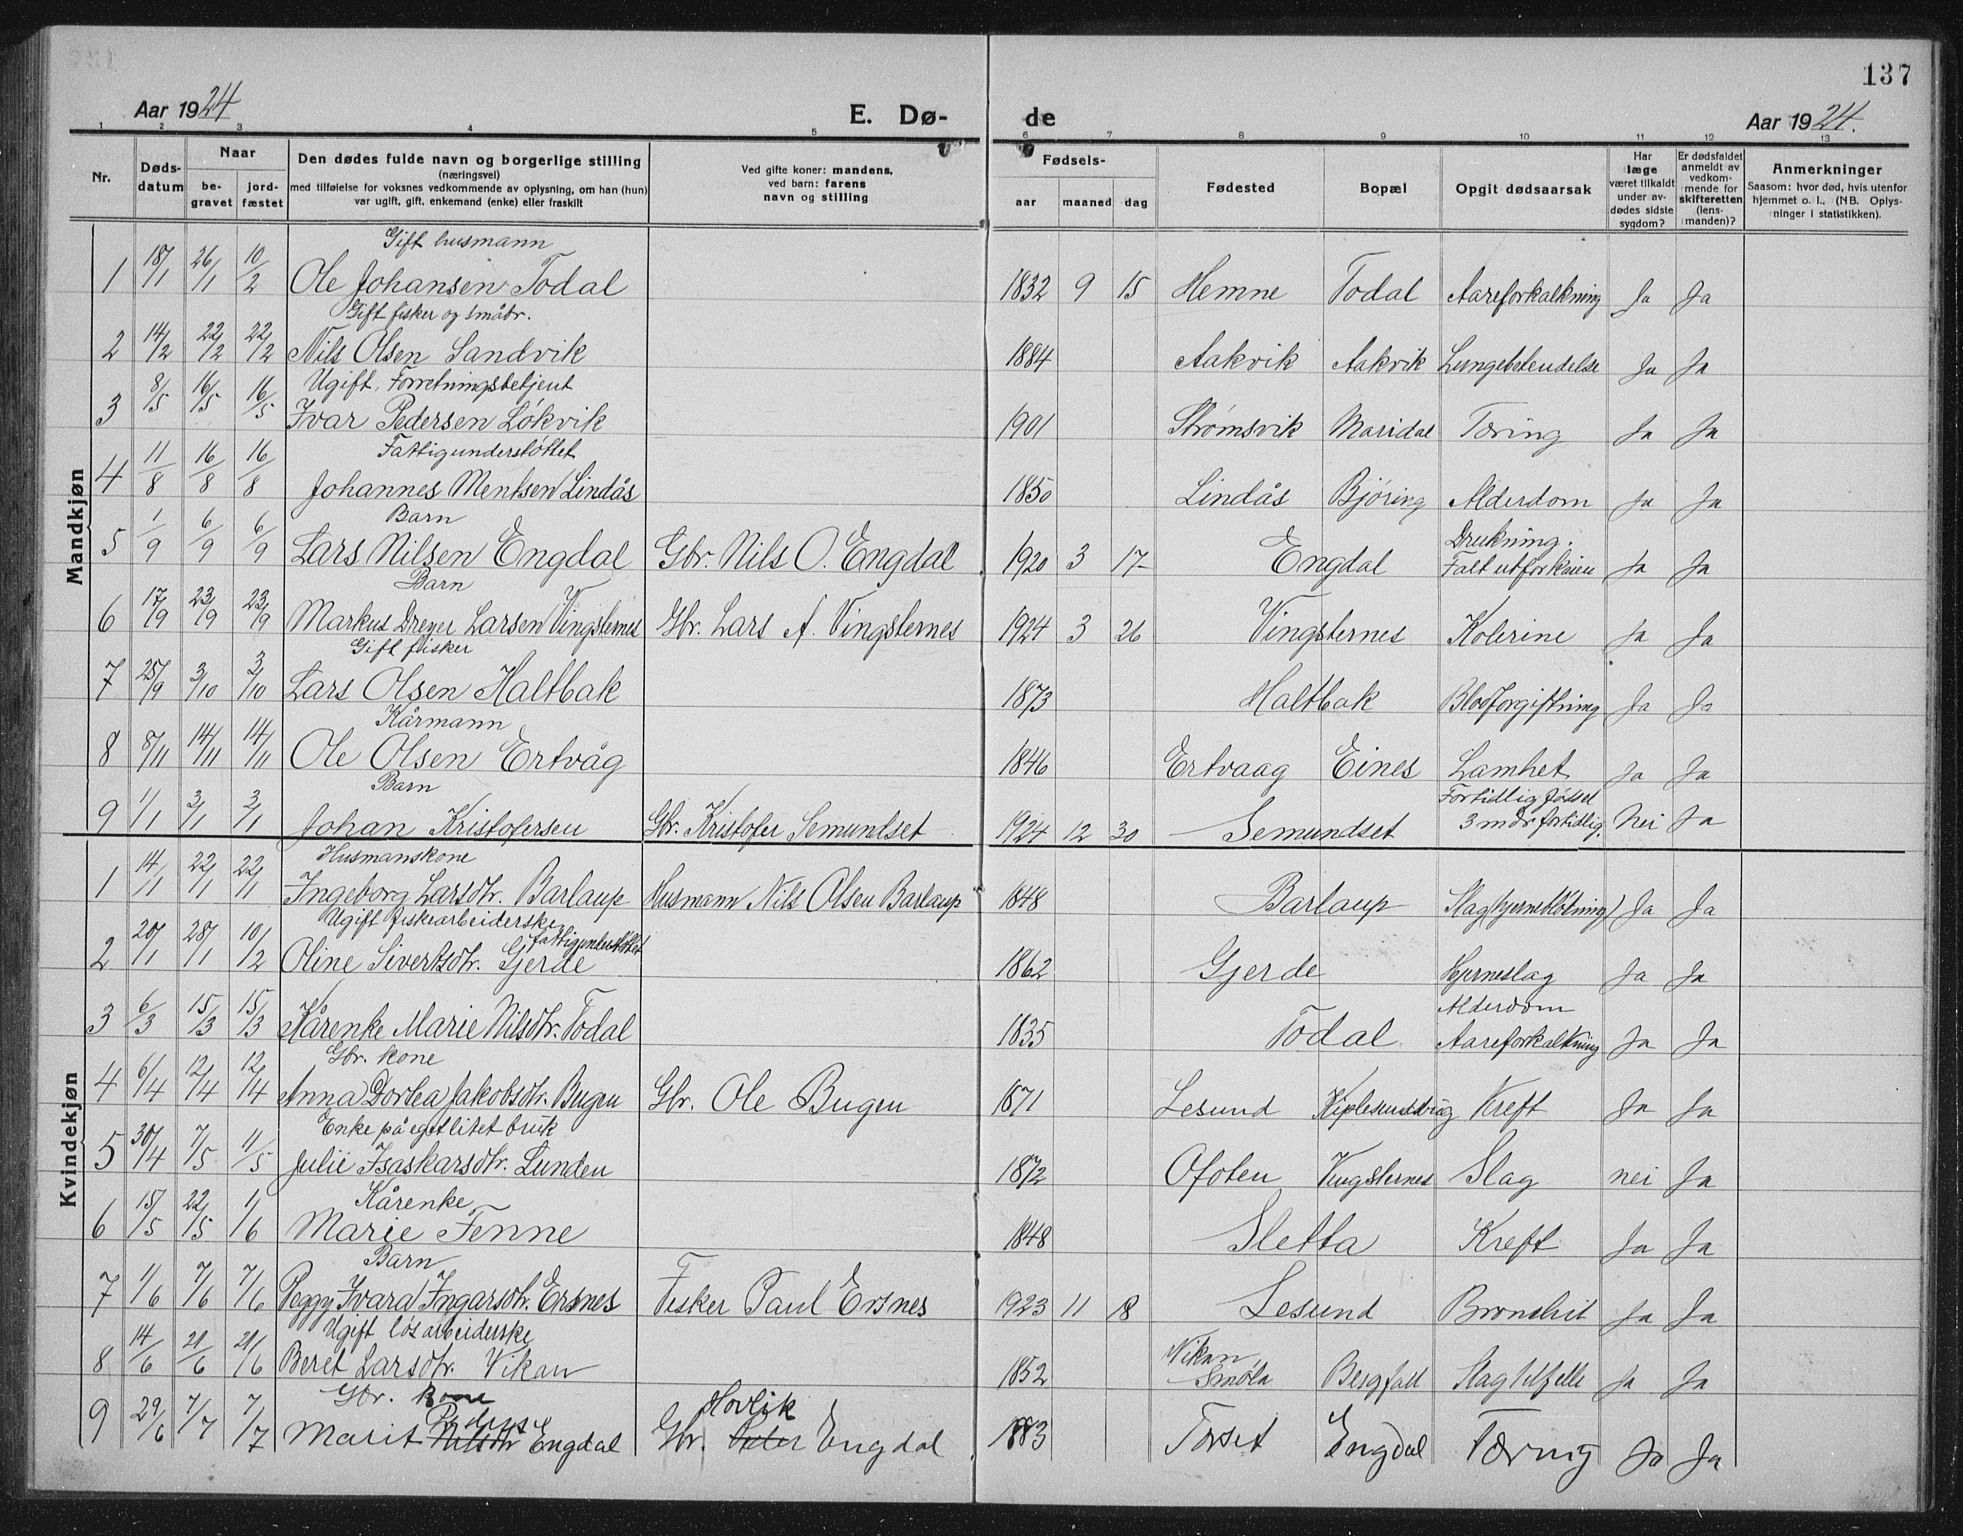 137
Aar 1924 E. Dø- de Aar 1924.
1 2 3 4 5 6 7 8 9 10 11 12 13
Nr. Døds-datum Naar be-gravet jord-fæstet Den dødes fulde navn og borgerlige stilling (næringsvei) med tilføielse for voksnes vedkommende av oplysning, om han (hun) var ugift, gift, enkemand (enke) eller fraskilt Ved gifte koner: mandens, ved barn: farens navn og stilling Fødsels- aar maaned dag Fødested Bopæl Opgit dødsaarsak Har læge været tilkaldt under av-dødes sidste sygdom? Er dødsfaldet anmeldt av vedkom-mende for skifteretten (lens-manden)? Anmerkninger Saasom: hvor død, hvis utenfor hjemmet o. l.. (NB. Oplys-ninger i statistikken).
Mandkjøn
Gift husmann
1 18/1 26/1 10/2 Ole Johansen Todal 1832 9 15 Hemne Todal Aareforkalkning Ja Ja
Gift fisker og småbr.
2 14/2 22/2 22/2 Nils Olsen Sandvik 1884 Aakvik Aakvik Lungebetendelse Ja Ja
Ugift. Forretningsbetjent
3 8/5 16/5 16/5 Ivar Pedersen Løkvik 1901 Strømsvik Maridal Tæring Ja Ja
Fattigunderstøttet
4 11/8 16/8 16/8 Johannes Mentsen Lindås 1850 Lindås Bjøring Alderdom Ja Ja
Barn Drukning.
5 1/9 6/9 6/9 Lars Nilsen Engdal Gbr. Nils O. Engdal 1920 3 17 Engdal Falt utfor kaien Ja Ja
Barn
6 17/9 23/9 23/9 Markus Dreyer Larsen Vingsternes Gbr. Lars A. Vingsternes 1924 3 26 Vingsternes Kolerine Ja Ja
Gift fisker
7 25/9 3/10 3/10 Lars Olsen Haltbak 1873 Haltbak Blodforgiftning Ja Ja
Kårmann
8 8/11 14/11 14/11 Ole Olsen Ertvåg 1846 Ertvaag Eines Lamhet Ja Ja
Barn Fortidlig fødsel
9 1/1 3/1 3/1 Johan Kristofersen Gbr. Kristofer Semundset 1924 12 30 Semundset 3 mdr fortidlig. Nei Ja
Kvindekjøn
Husmanskone
1 14/11 22/1 22/1 Ingeborg Larsdtr. Barlaup Husmann Nils Olsen Barlaup 1848 Barlaup Slag (hjerneblødning) Ja Ja
Ugift fiskearbeiderske fattigunderstøttet
2 20/1 28/1 10/2 Oline Sivertsdtr. Gjerde 1862 Gjerde Hjerneslag Ja Ja
Alderdom
3 6/3 15/3 15/3 Kårenke Marie Nilsdtr. Todal 1835 Todal Aareforkalkning Ja Ja
Gbr. kone
4 6/4 12/4 12/4 Anna Dortea Jakobsdtr. Bugen Gbr. Ole Bugen 1871 Lesund Kiplesundvåg Kreft Ja Ja
Enke på eget litet bruk
5 30/4 7/5 11/5 Julie Isaskarsdtr. Lunden 1872 Ofoten Vingsternes Slag nei Ja
Kårenke
6 15/5 22/5 1/6 Marie Tenne 1848 Sletta Kreft Ja Ja
Barn
7 1/6 7/6 7/6 Peggy Ivara Ingarsdtr. Ersnes Fisker Paul Ersnes 1923 11 18 Lesund Bronchit Ja Ja
Ugift løsarbeiderske Vikan
8 14/6 20/6 20/6 Beret Larsdtr. Vikan 1852 Smøla Bergfall Slagtilfelle Ja Ja
Gbr. kone Hovlik
9 29/6 7/7 7/7 Marit Nilsdtr Engdal Gbr. Peter Engdal 1883 Torset Engdal Tæring Ja Ja